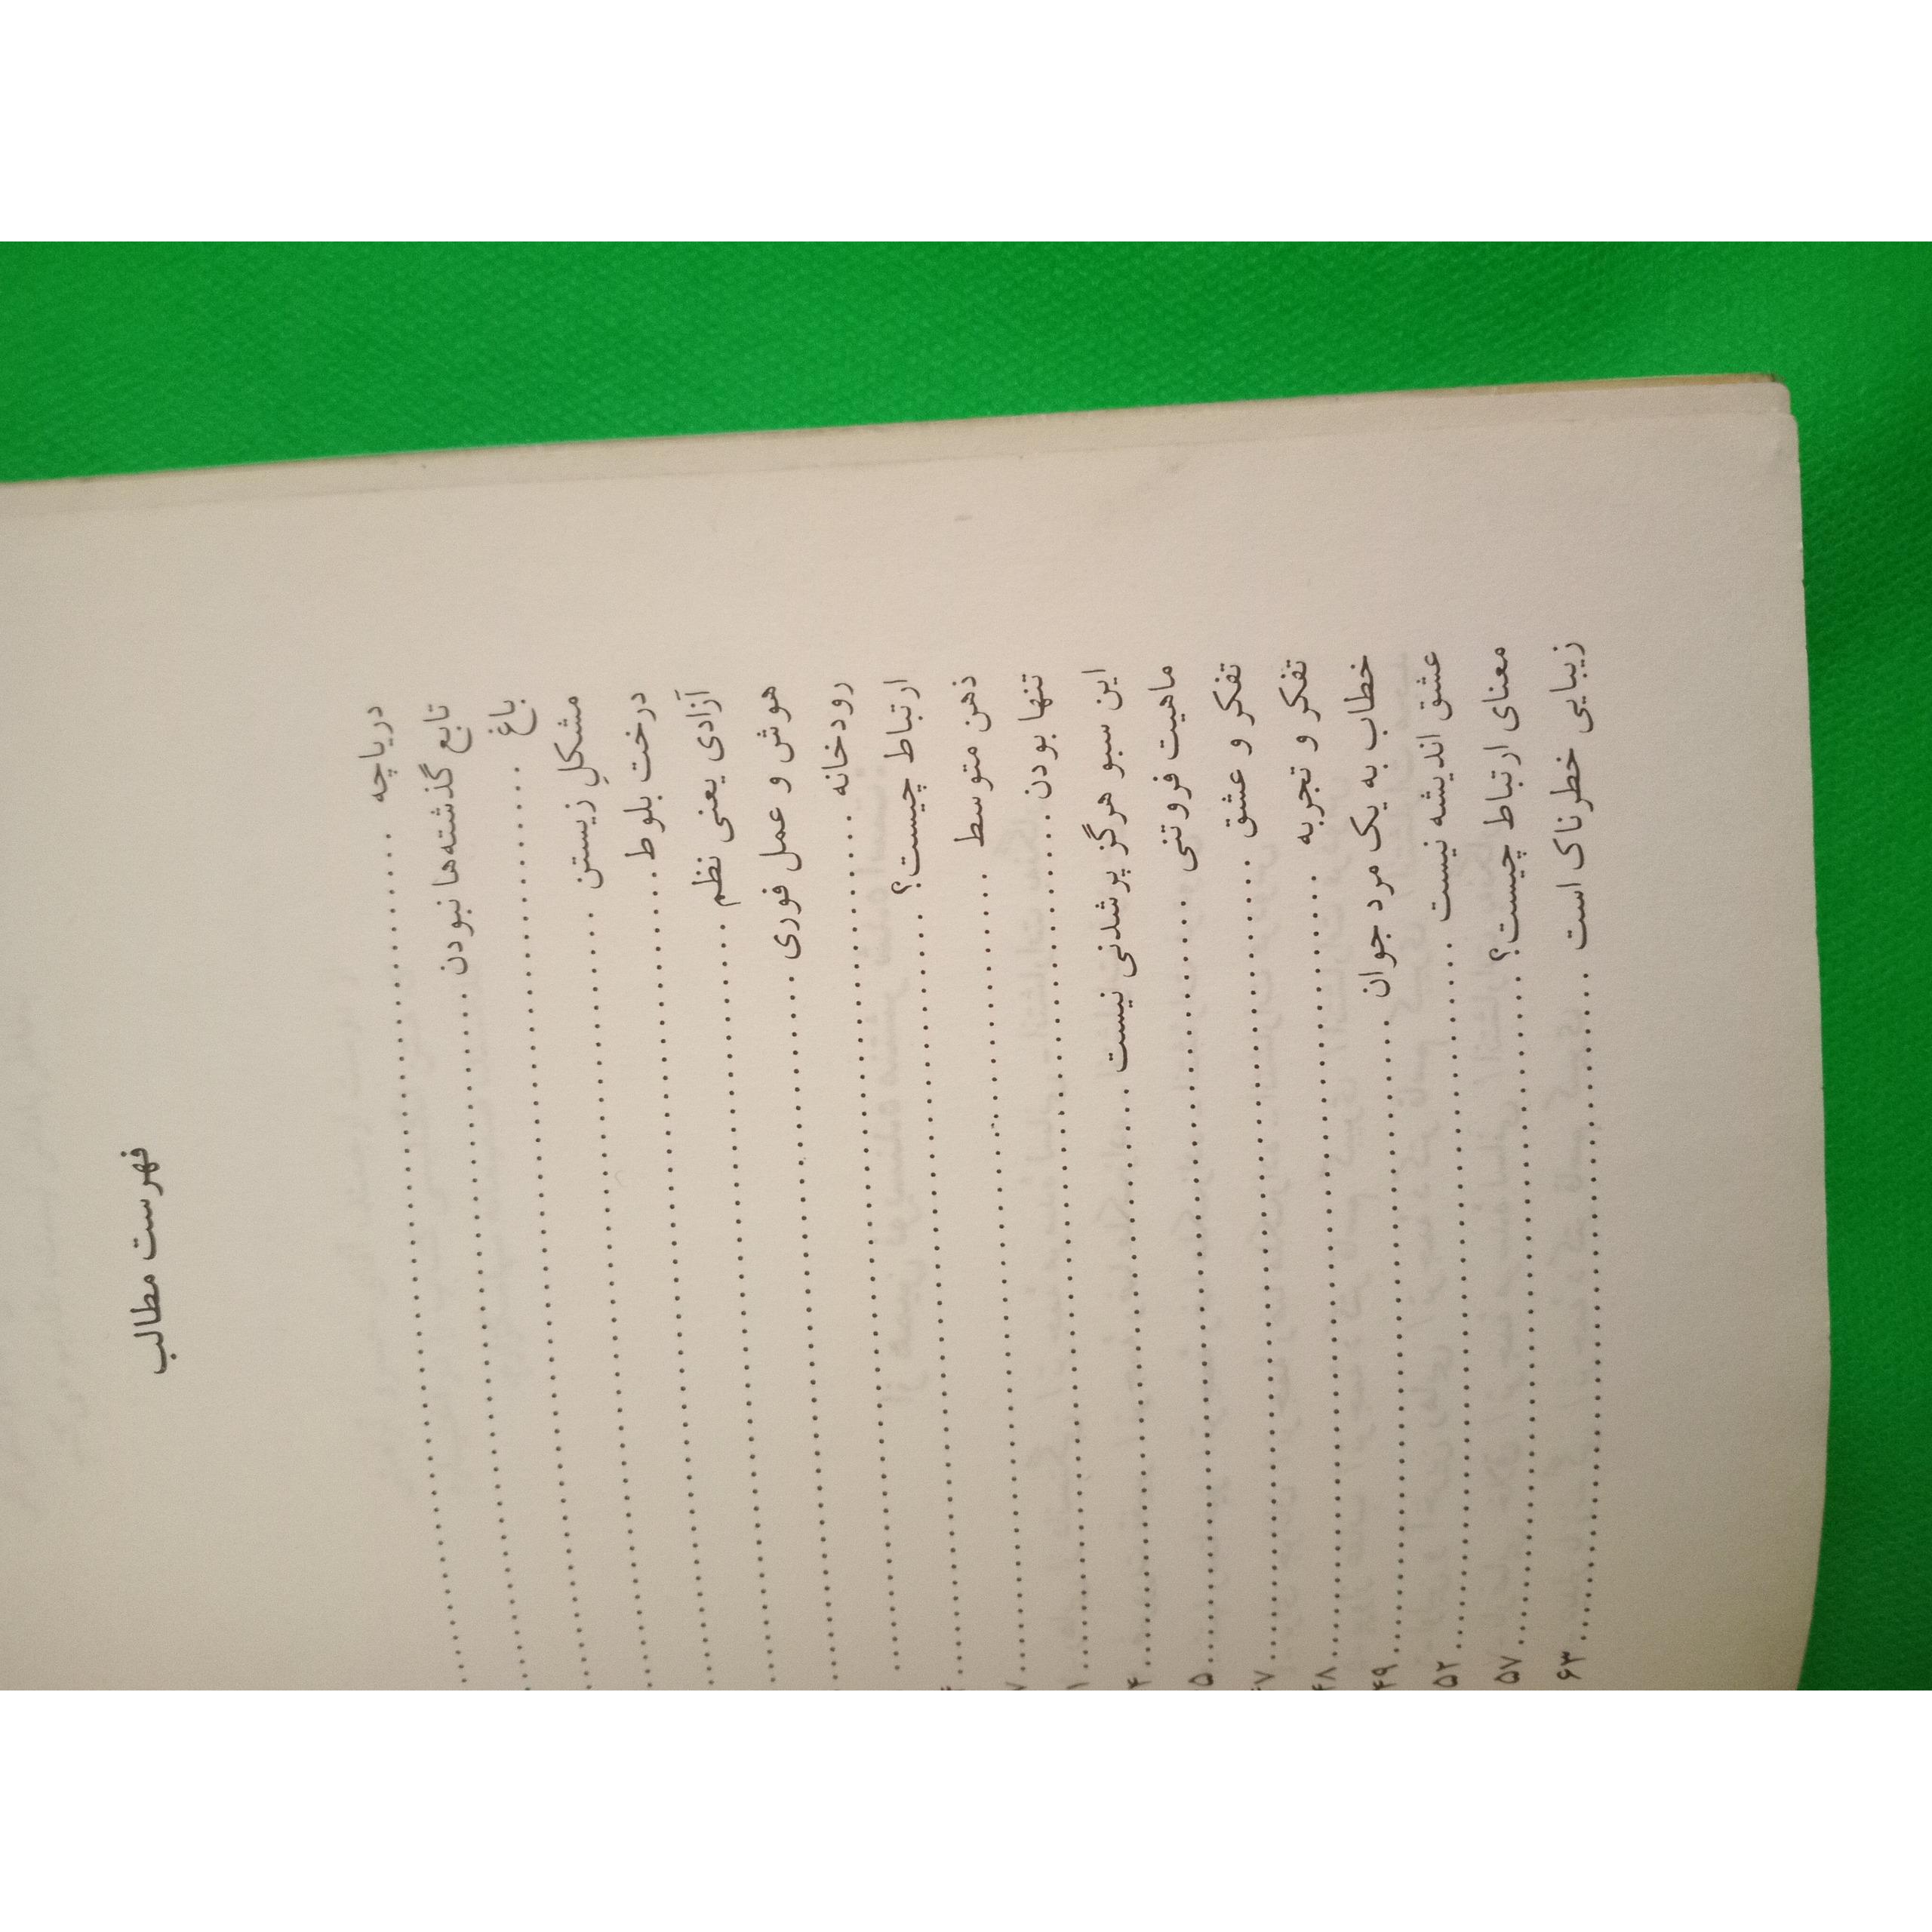 فهرست مطالب
دریاچه
تابع گذشته‌ها نبودن
باغ
مشکلِ زیستن
درخت بلوط
آزادی یعنی نظم
هوش و عمل فوری
رودخانه
ارتباط چیست؟
ذهن متوسط
تنها بودن
این سبو هرگز پرشدنی نیست
ماهیت فروتنی
تفکر و عشق
تفکر و تجربه
خطاب به یک مرد جوان ۴۹
عشق اندیشه نیست ۵۲
معنای ارتباط چیست؟ ۵۷
زیبایی خطرناک است ۶۳